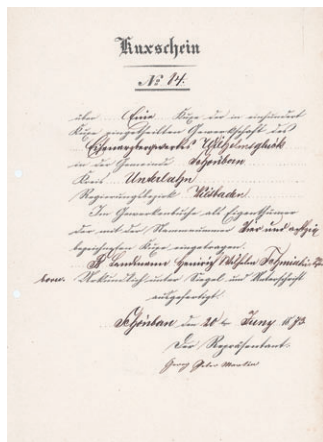 Kuxschein
No 84.
über Eine Kuxe der in einhundert
Kuxe eingetheilten Gewerkschaft des
Eisenerzbergwerks Wilhelmsglück
in der Gemeinde Schönborn
Kreis Unterlahn
Regierungsbezirk Wiesbaden
Im Gewerkenbuche als Eigenthümer
der mit der Stammnummer Vier und achtzig
bezeichneten Kuxe eingetragen.
Landmann Heinrich Wilhelm
born. Urkundlich unter Siegel und Unterschrift
ausgefertigt.
den 20 ten Juny 1873
Der Repräsentant.
Georg Peter